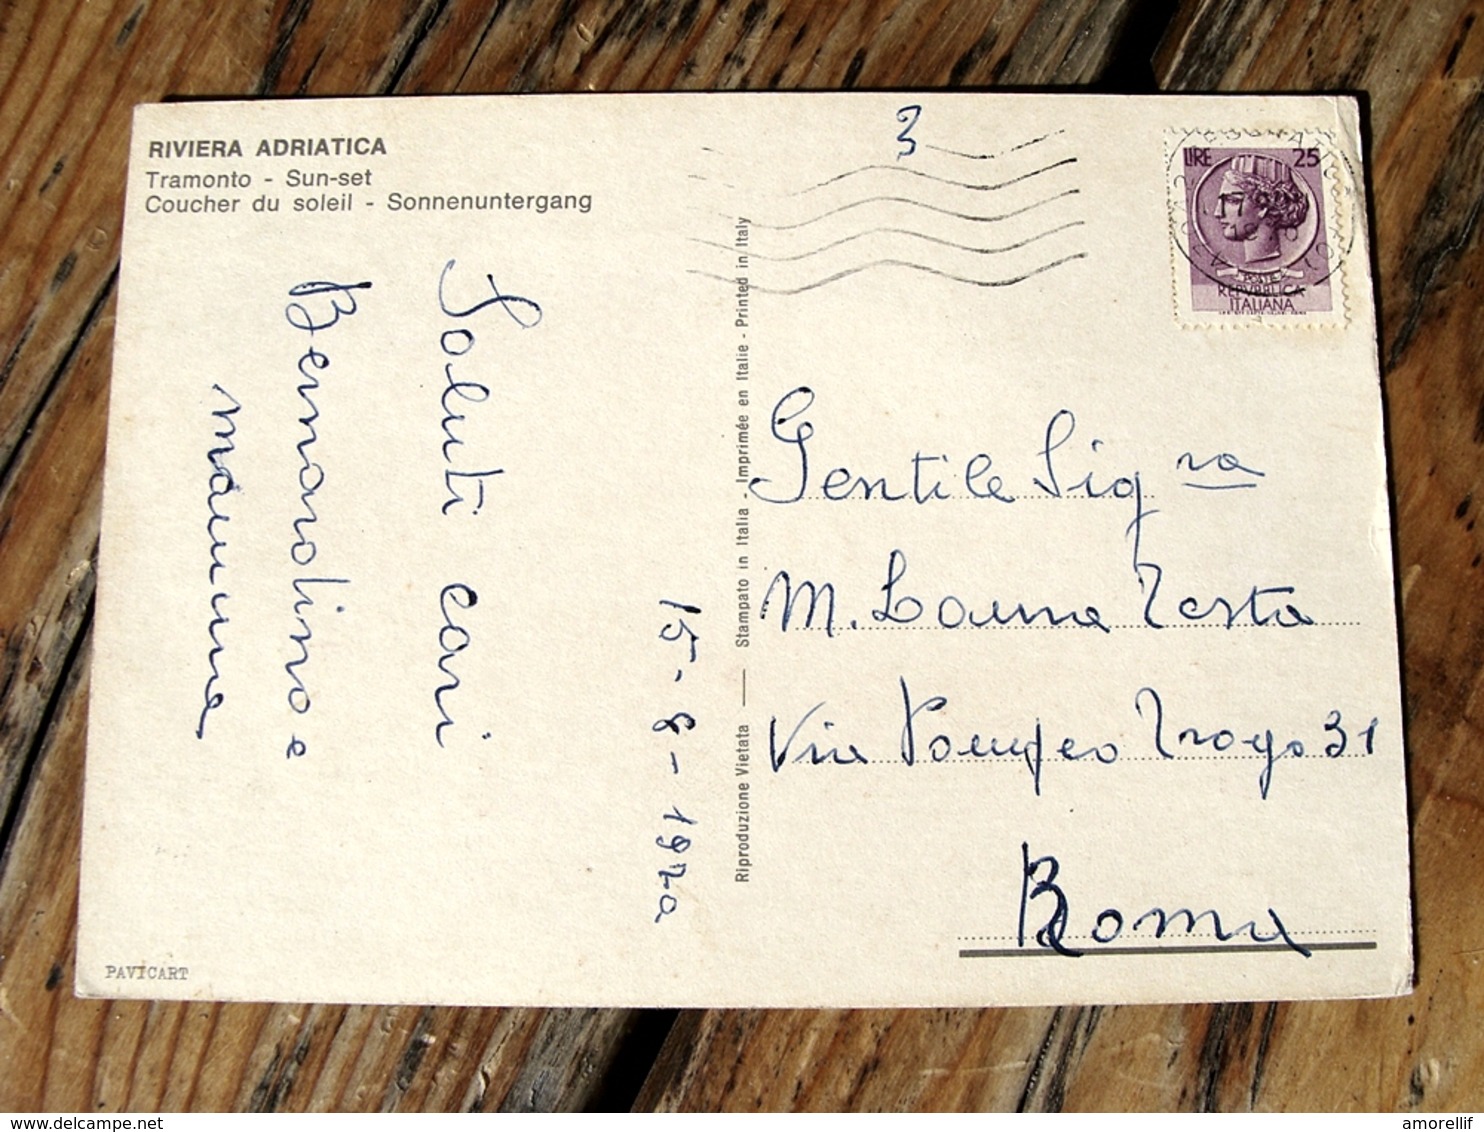 RIVIERA ADRIATICA
Tramonto - Sun-set
Coucher du soleil - Sonnenuntergang
3
LIRE 25
POSTE
REPVBBLICA
ITALIANA
Saluti cari
Bernardino e
mamma
15-8-1970
Riproduzione Vietata — Stampato in Italia - Imprimée en Italie - Printed in Italy
Gentile Sig ra
M. Laura Testa
Via Pompeo Trogo 31
Roma
PAVICART
amorellif